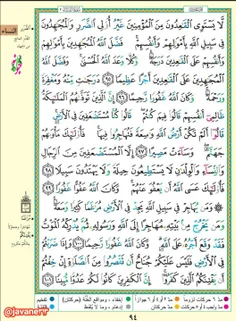 لَّا يَسْتَوِى ٱلْقَٰعِدُونَ مِنَ ٱلْمُؤْمِنِينَ غَيْرُ أُو۟لِى ٱلضَّرَرِ وَٱلْمُجَٰهِدُونَ
فِى سَبِيلِ ٱللَّهِ بِأَمْوَٰلِهِمْ وَأَنفُسِهِمْ فَضَّلَ ٱللَّهُ ٱلْمُجَٰهِدِينَ بِأَمْوَٰلِهِمْ
وَأَنفُسِهِمْ عَلَى ٱلْقَٰعِدِينَ دَرَجَةً وَكُلًّا وَعَدَ ٱللَّهُ ٱلْحُسْنَىٰ وَفَضَّلَ ٱللَّهُ
ٱلْمُجَٰهِدِينَ عَلَى ٱلْقَٰعِدِينَ أَجْرًا عَظِيمًا ٩٥ دَرَجَٰتٍ مِّنْهُ وَمَغْفِرَةً
وَرَحْمَةً وَكَانَ ٱللَّهُ غَفُورًا رَّحِيمًا ٩٦ إِنَّ ٱلَّذِينَ تَوَفَّىٰهُمُ ٱلْمَلَٰٓئِكَةُ
ظَالِمِىٓ أَنفُسِهِمْ قَالُوا۟ فِيمَ كُنتُمْ قَالُوا۟ كُنَّا مُسْتَضْعَفِينَ فِى ٱلْأَرْضِ
قَالُوٓا۟ أَلَمْ تَكُنْ أَرْضُ ٱللَّهِ وَٰسِعَةً فَتُهَاجِرُوا۟ فِيهَا فَأُو۟لَٰٓئِكَ مَأْوَىٰهُمْ
جَهَنَّمُ وَسَآءَتْ مَصِيرًا ٩٧ إِلَّا ٱلْمُسْتَضْعَفِينَ مِنَ ٱلرِّجَالِ
وَٱلنِّسَآءِ وَٱلْوِلْدَٰنِ لَا يَسْتَطِيعُونَ حِيلَةً وَلَا يَهْتَدُونَ سَبِيلًا ٩٨
فَأُو۟لَٰٓئِكَ عَسَى ٱللَّهُ أَن يَعْفُوَ عَنْهُمْ وَكَانَ ٱللَّهُ عَفُوًّا غَفُورًا ٩٩
وَمَن يُهَاجِرْ فِى سَبِيلِ ٱللَّهِ يَجِدْ فِى ٱلْأَرْضِ مُرَٰغَمًا كَثِيرًا وَسَعَةً
وَمَن يَخْرُجْ مِنۢ بَيْتِهِۦ مُهَاجِرًا إِلَى ٱللَّهِ وَرَسُولِهِۦ ثُمَّ يُدْرِكْهُ ٱلْمَوْتُ
فَقَدْ وَقَعَ أَجْرُهُۥ عَلَى ٱللَّهِ وَكَانَ ٱللَّهُ غَفُورًا رَّحِيمًا ١٠٠ وَإِذَا ضَرَبْتُمْ
فِى ٱلْأَرْضِ فَلَيْسَ عَلَيْكُمْ جُنَاحٌ أَن تَقْصُرُوا۟ مِنَ ٱلصَّلَوٰةِ إِنْ خِفْتُمْ
أَن يَفْتِنَكُمُ ٱلَّذِينَ كَفَرُوٓا۟ إِنَّ ٱلْكَٰفِرِينَ كَانُوا۟ لَكُمْ عَدُوًّا مُّبِينًا ١٠١
٩٤
@javaner